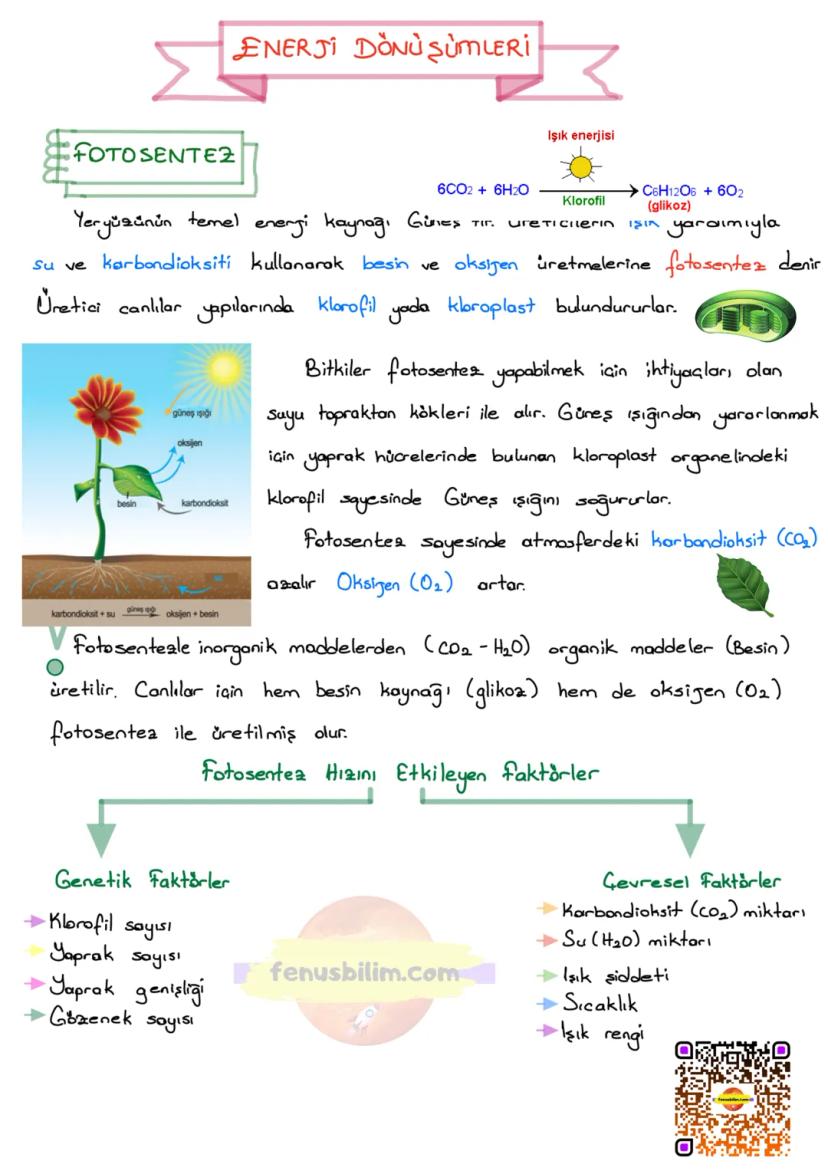 ENERJİ DÖNÜŞÜMLERİ
FOTOSENTEZ
Işık enerjisi
6CO2 + 6H2O → C6H12O6 + 6O2
Klorofil
(glikoz)
Yeryüzünün temel enerji kaynağı Güneş tir. Üreticilerin ışık yardımıyla
su ve karbondioksiti kullanarak besin ve oksijen üretmelerine fotosentez denir
Üretici canlılar yapılarında klorofil yada kloroplast bulundururlar.
Bitkiler fotosentez yapabilmek için ihtiyaçları olan
suyu topraktan kökleri ile alır. Güneş ışığından yararlanmak
için yaprak hücrelerinde bulunan kloroplast organelindeki
klorofil sayesinde Güneş ışığını soğururlar.
Fotosentez sayesinde atmosferdeki karbondioksit (CO2)
azalır Oksijen (O2) artar.
güneş ışığı
oksijen
besin
karbondioksit
su
karbondioksit + su güneş ışığı → oksijen + besin
! Fotosentezle inorganik maddelerden (CO2 - H2O) organik maddeler (Besin)
üretilir. Canlılar için hem besin kaynağı (glikoz) hem de oksijen (O2)
fotosentez ile üretilmiş olur.
Fotosentez Hızını Etkileyen Faktörler
Genetik Faktörler
Klorofil sayısı
Yaprak sayısı
Yaprak genişliği
Gözenek sayısı
Çevresel Faktörler
Karbondioksit (CO2) miktarı
Su (H2O) miktarı
Işık şiddeti
Sıcaklık
Işık rengi
fenusbilim.com
fenusbilim.com